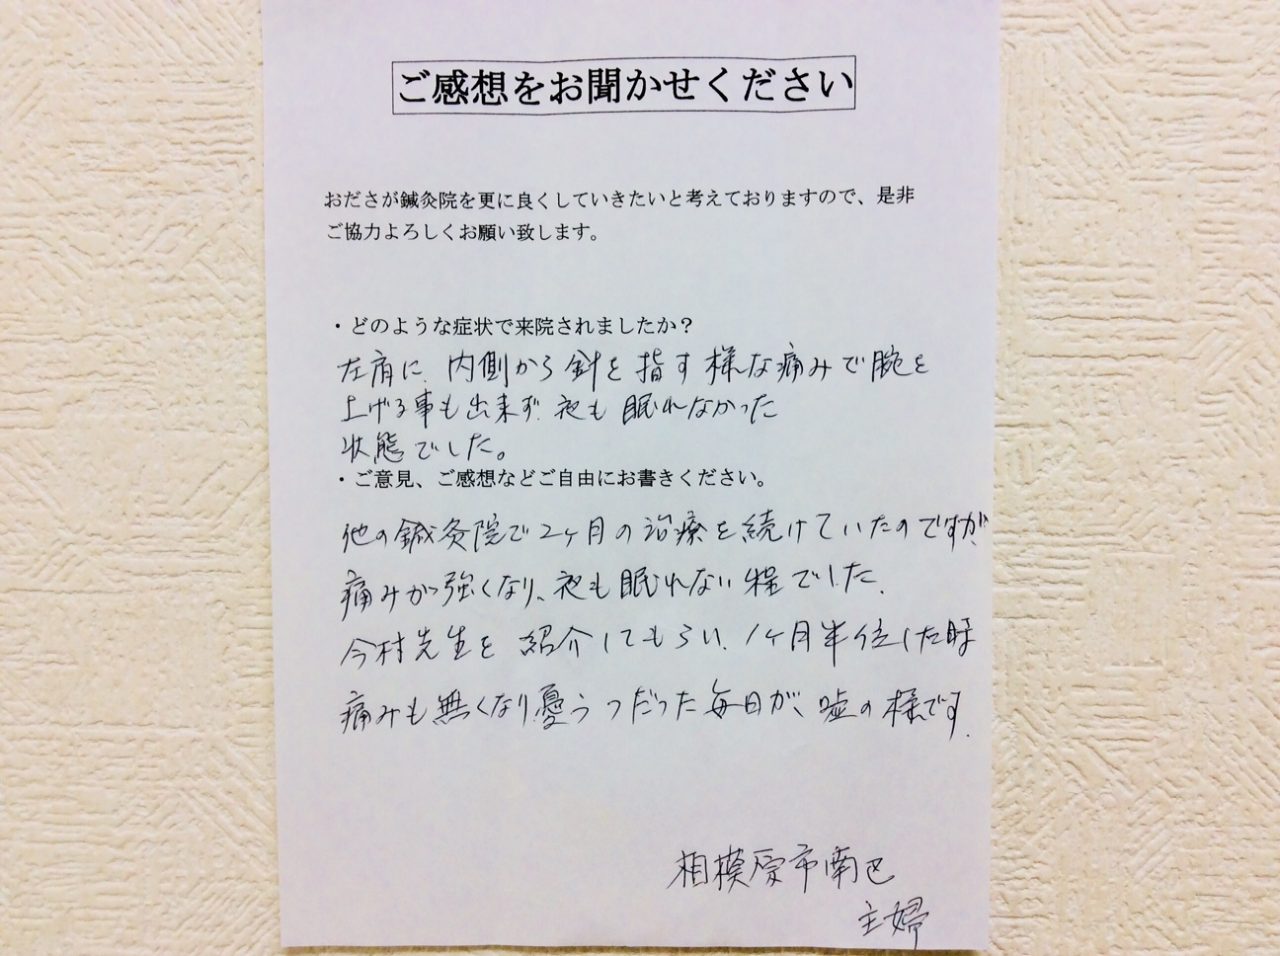 ご感想をお聞かせください
おださが鍼灸院を更に良くしていきたいと考えておりますので、是非
ご協力よろしくお願い致します。
・どのような症状で来院されましたか？
左肩に、内側から針を指す様な痛みで腕を
上げる事も出来ず、夜も眠れなかった
状態でした。
・ご意見、ご感想などご自由にお書きください。
他の鍼灸院で2ヶ月の治療を続けていたのですが、
痛みが強くなり、夜も眠れない程でした。
今村先生を紹介してもらい、1ヶ月半位した時
痛みも無くなり憂うつだった毎日が、嘘の様です。
相模原市南区
主婦